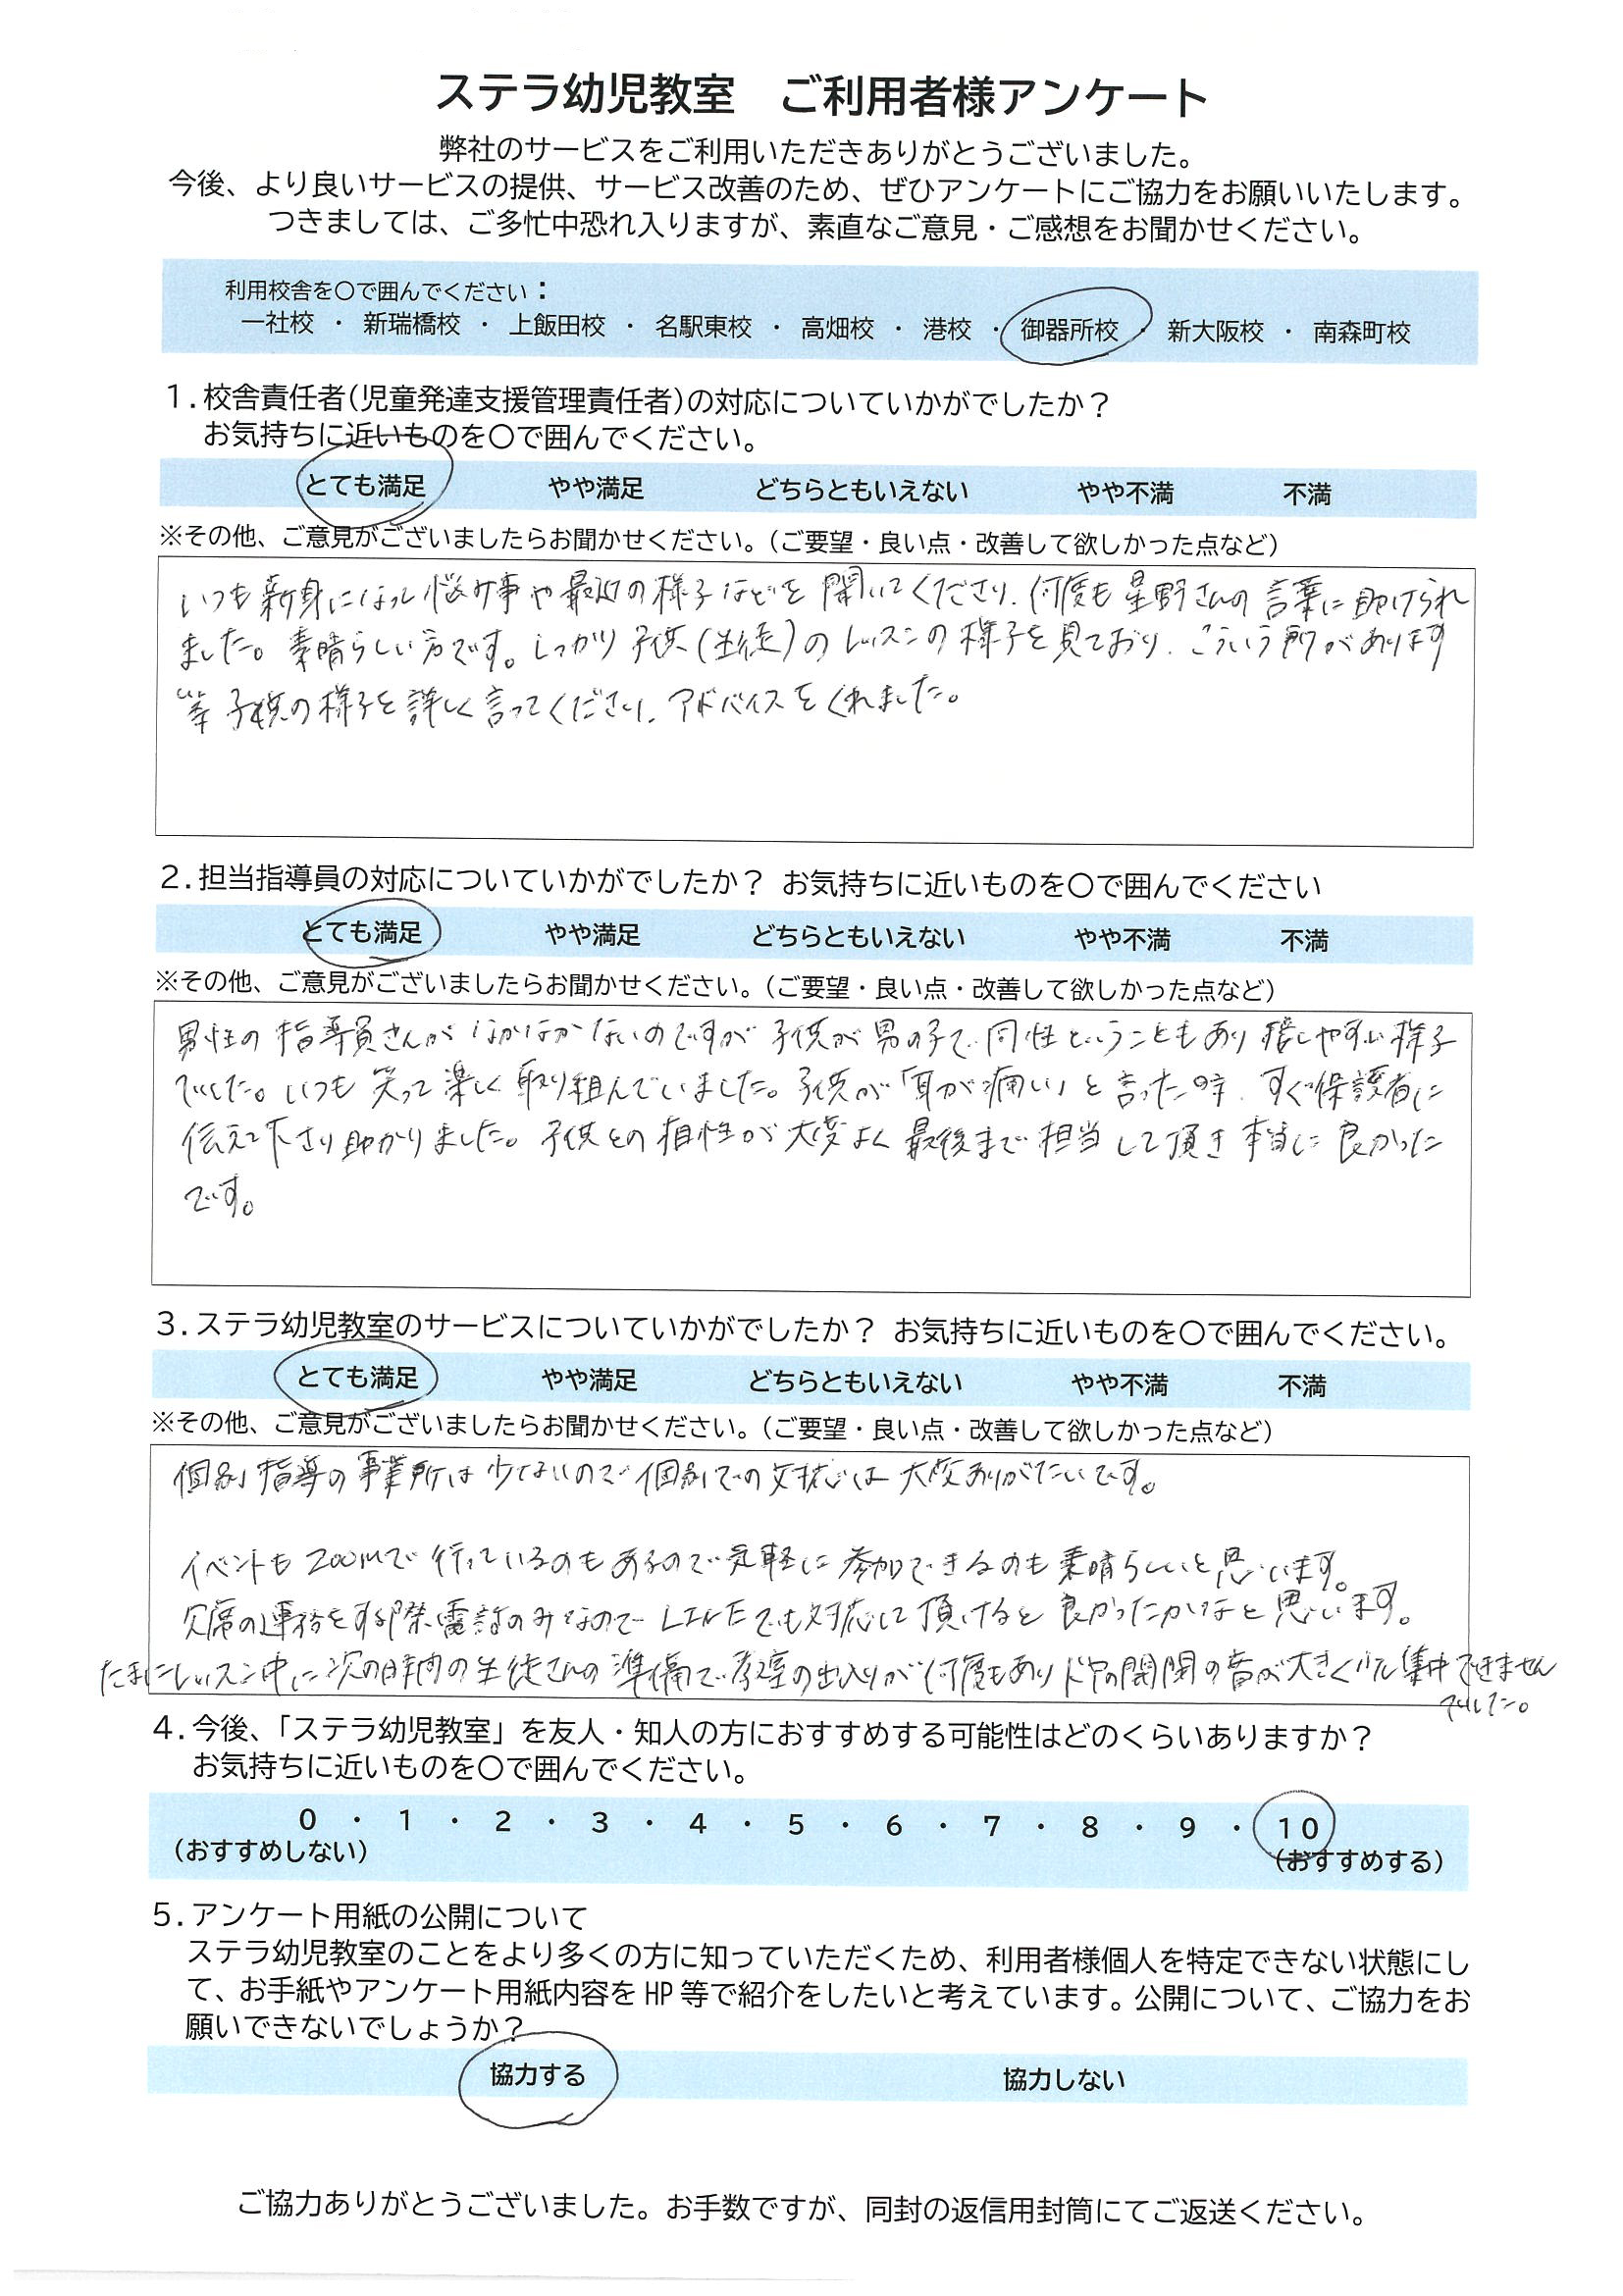 ステラ幼児教室　ご利用者様アンケート
弊社のサービスをご利用いただきありがとうございました。
今後、より良いサービスの提供、サービス改善のため、ぜひアンケートにご協力をお願いいたします。
つきましては、ご多忙中恐れ入りますが、素直なご意見・ご感想をお聞かせください。
利用校舎を〇で囲んでください：
一社校 ・ 新瑞橋校 ・ 上飯田校 ・ 名駅東校 ・ 高畑校 ・ 港校 ・ 御器所校 ・ 新大阪校 ・ 南森町校
1．校舎責任者（児童発達支援管理責任者）の対応についていかがでしたか？
お気持ちに近いものを〇で囲んでください。
とても満足 やや満足 どちらともいえない やや不満 不満
※その他、ご意見がございましたらお聞かせください。（ご要望・良い点・改善して欲しかった点など）
いつも親身になって悩み事や最近の様子などを聞いてくださり、何度も星野さんの言葉に助けられ
ました。素晴らしい方です。しっかり子供（生徒）のレッスンの様子を見ており、こういう所があります
等子供の様子を詳しく言ってくださり、アドバイスをくれました。
2．担当指導員の対応についていかがでしたか？ お気持ちに近いものを〇で囲んでください
とても満足 やや満足 どちらともいえない やや不満 不満
※その他、ご意見がございましたらお聞かせください。（ご要望・良い点・改善して欲しかった点など）
男性の指導員さんがなかなかないのですが子供が男の子で、同性ということもあり接しやすい様子
でした。いつも笑って楽しく取り組んでいました。子供が「耳が痛い」と言った時、すぐ保護者に
伝えて下さり助かりました。子供との相性が大変よく最後まで担当して頂き本当に良かった
です。
3．ステラ幼児教室のサービスについていかがでしたか？ お気持ちに近いものを〇で囲んでください。
とても満足 やや満足 どちらともいえない やや不満 不満
※その他、ご意見がございましたらお聞かせください。（ご要望・良い点・改善して欲しかった点など）
個別指導の事業所は少ないので個別での対応は大変ありがたいです。
イベントもZoomで行っているのもあるので気軽に参加できるのも素晴らしいと思います。
欠席の連絡をする際、電話のみなので LINEでも対応して頂けると良かったかなと思います。
たまにレッスン中に次の時間の生徒さんの準備で教室の出入りが何度もありドアの開閉の音が大きくて集中できません
でした。
4．今後、「ステラ幼児教室」を友人・知人の方におすすめする可能性はどのくらいありますか？
お気持ちに近いものを〇で囲んでください。
0 ・ 1 ・ 2 ・ 3 ・ 4 ・ 5 ・ 6 ・ 7 ・ 8 ・ 9 ・ 10
（おすすめしない） （おすすめする）
5．アンケート用紙の公開について
ステラ幼児教室のことをより多くの方に知っていただくため、利用者様個人を特定できない状態にし
て、お手紙やアンケート用紙内容を HP 等で紹介をしたいと考えています。公開について、ご協力をお
願いできないでしょうか？
協力する 協力しない
ご協力ありがとうございました。お手数ですが、同封の返信用封筒にてご返送ください。